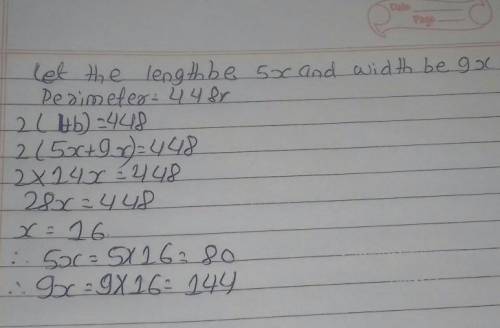 Date
Page
Let the length be 5x and width be 9x
Perimeter = 448r
2(l+b)=448
2(5x+9x)=448
2×14x=448
28x=448
x = 16
∴ 5x = 5×16 = 80
∴ 9x = 9×16 = 144